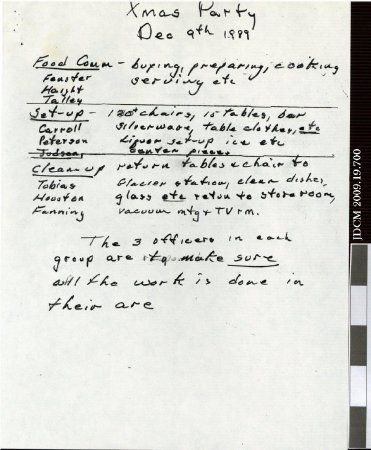 Xmas Party
Dec 9th 1989
Food Comm - buying, preparing, cooking
Fenster serving etc
Haight
Talley
Set-up - 120+ chairs, 15 tables, bar
Carroll Silverware, table clothes, etc
Peterson Liquor set-up ice etc
Judson Center pieces
Clean-up return tables & chair to
Tobias Glacier station, clean dishes,
Houston glass etc retun to storeroom,
Fanning vacuum mtg + TV rm.
The 3 officers in each
group are to make sure
all the work is done in
their are
JDCM 2009.19.700